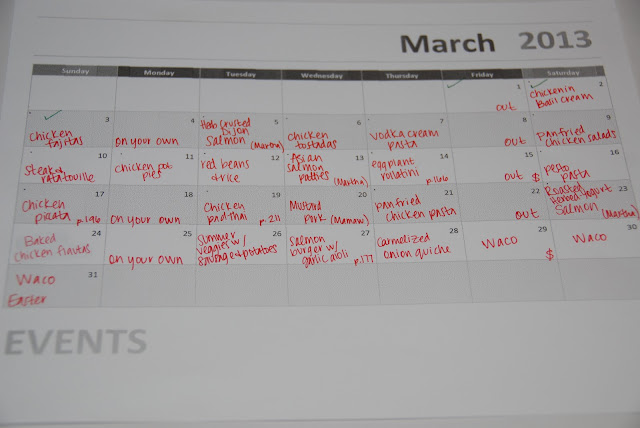 March 2013
Sunday Monday Tuesday Wednesday Thursday Friday Saturday
1
out
2
chicken in
Basil cream
3
chicken
fajitas
4
on your own
5
Herb Crusted
Dijon
Salmon
(Martha)
6
chicken
tostadas
7
vodka cream
pasta
8
out
9
panfried
chicken salads
10
Steak &
ratatouille
11
chicken pot
pies
12
red beans
& rice
13
Asian
salmon
patties
(Martha)
14
eggplant
rolatini
p.166
15
out $
16
pesto
pasta
17
Chicken
picatta
p.196
18
on your own
19
Chicken
pad-thai
p.211
20
Mustard
Pork (Mamaw)
21
panfried
chicken pasta
22
out
23
Roasted
Herbed Yogurt
Salmon
(Martha)
24
Baked
chicken flautas
25
on your own
26
Summer
veggies w/
sausage & potatoes
27
Salmon
burger w/
garlic aioli
p.177
28
Carmelized
onion quiche
29
Waco
$
30
Waco
31
Waco
Easter
EVENTS